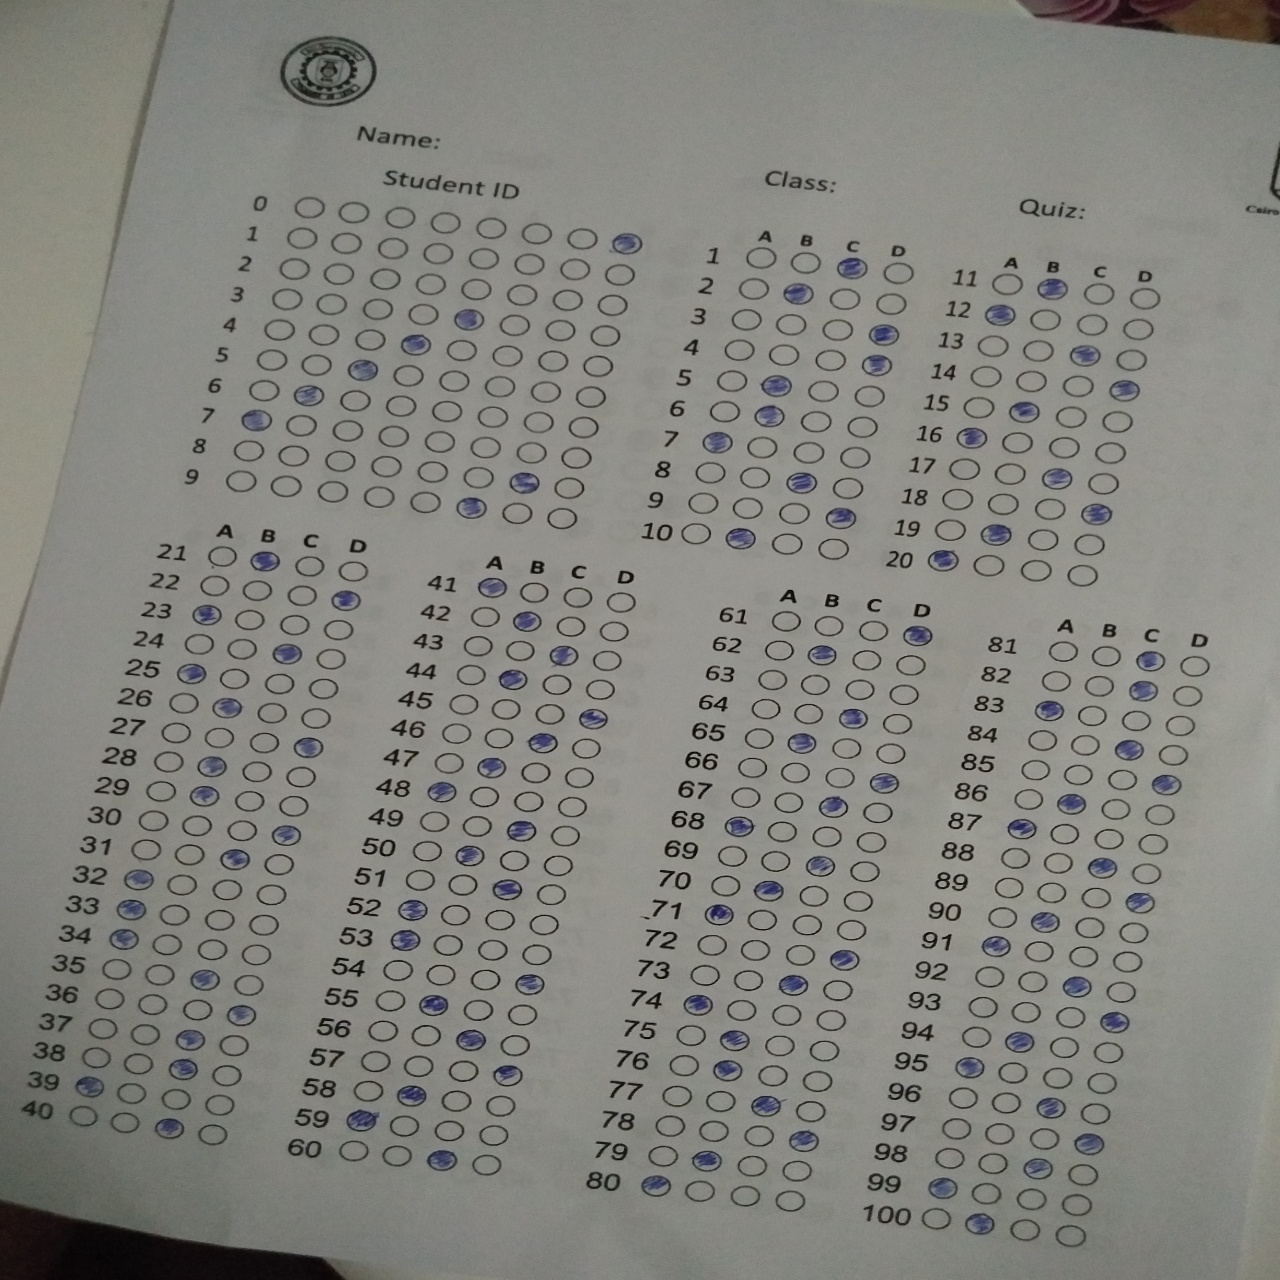 Name:
Student ID
Class:
Quiz:
Cairo
0
1
2
3
4
5
6
7
8
9
A B C D
1
2
3
4
5
6
7
8
9
10
A B C D
11
12
13
14
15
16
17
18
19
20
A B C D
21
22
23
24
25
26
27
28
29
30
31
32
33
34
35
36
37
38
39
40
A B C D
41
42
43
44
45
46
47
48
49
50
51
52
53
54
55
56
57
58
59
60
A B C D
61
62
63
64
65
66
67
68
69
70
71
72
73
74
75
76
77
78
79
80
A B C D
81
82
83
84
85
86
87
88
89
90
91
92
93
94
95
96
97
98
99
100